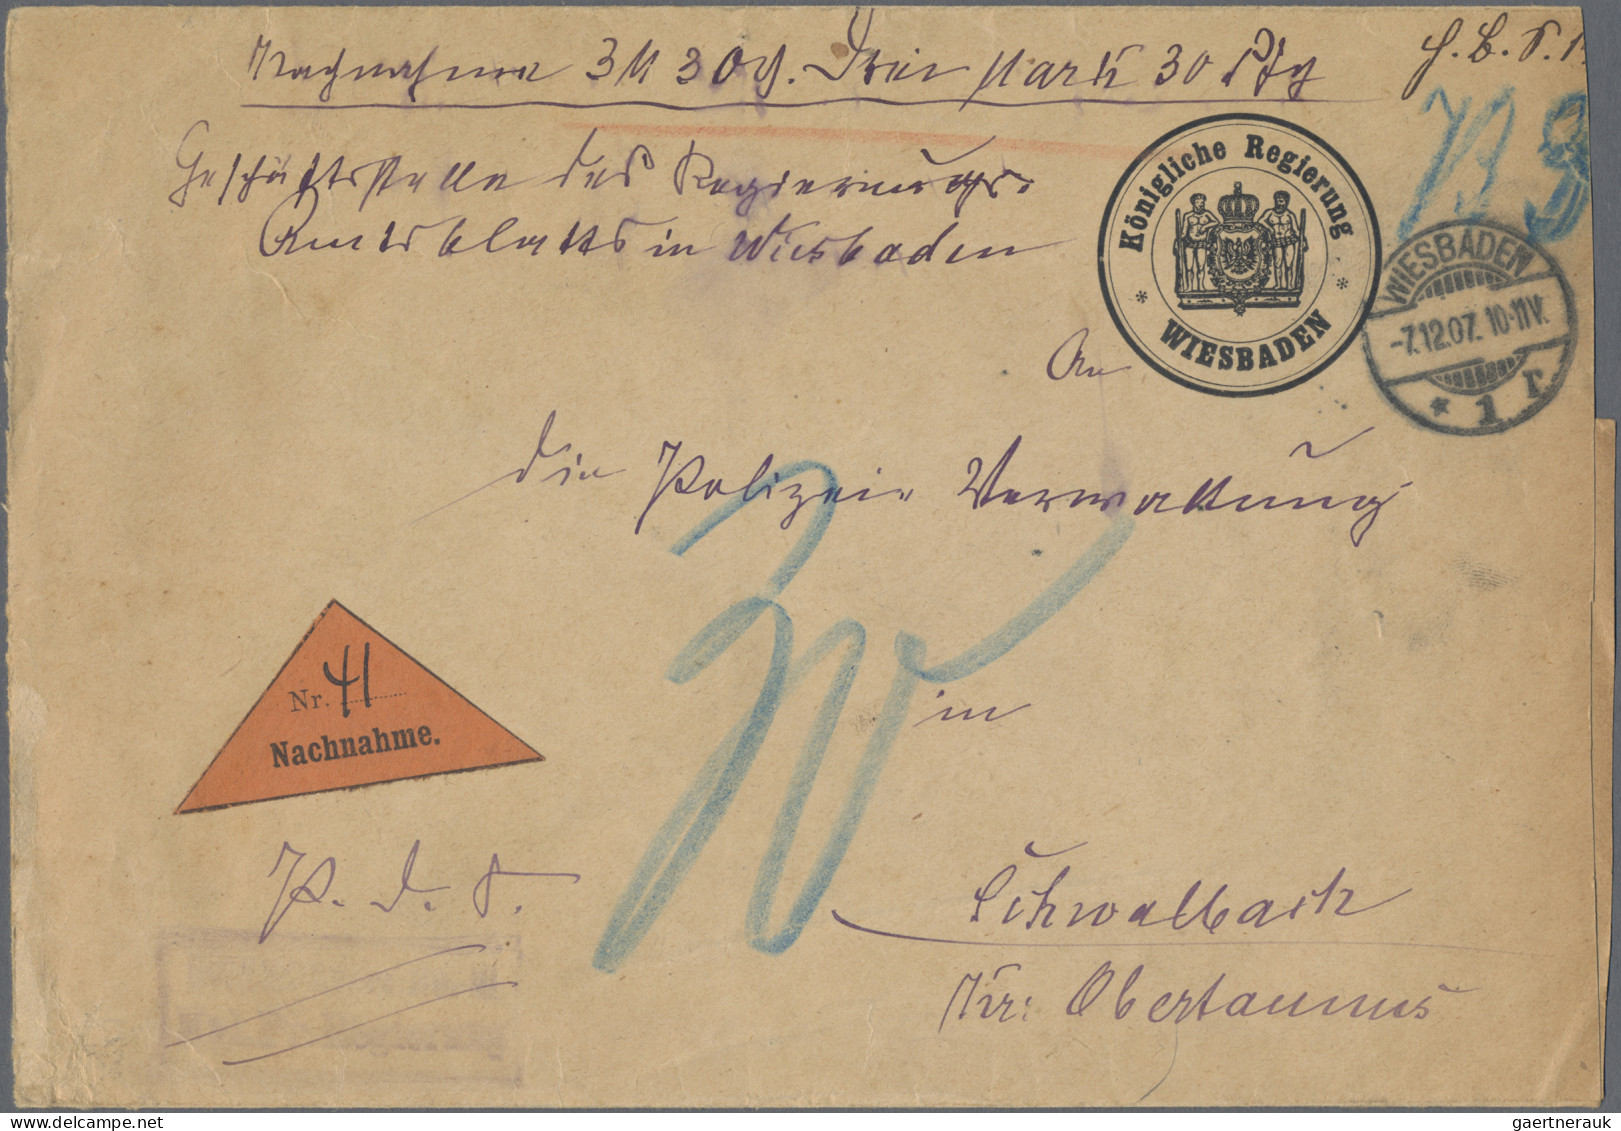 Nachnahme 3 M 30 ₰. Drei Mark 30 Pfg
Geschäftsstelle des Regierungs-
Amtsblatts in Wiesbaden
Königliche Regierung
* WIESBADEN *
WIESBADEN
-7.12.07. 10-11V.
* 1 r.
An
die Polizei-Verwaltung
in
Nr. 41
Nachnahme.
Schwalbach
Kr: Obertaunus
gaertnerauk @ delcampe.net